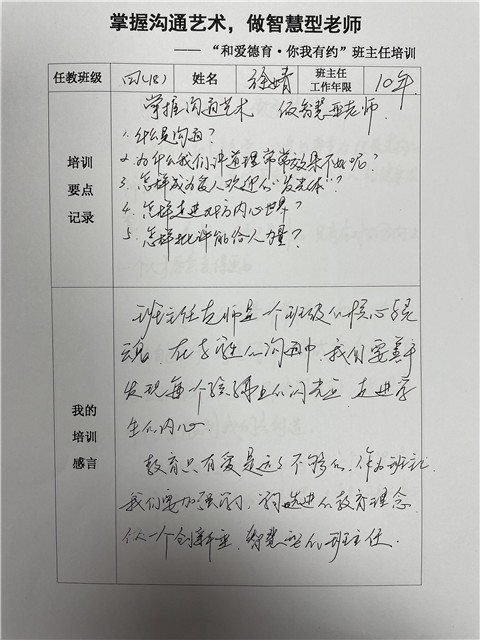 掌握沟通艺术，做智慧型老师
——“和爱德育·你我有约”班主任培训
任教班级 四(18) 姓名 徐婧 班主任工作年限 10年
培训要点记录
掌握沟通艺术 做智慧型老师
1. 什么是沟通?
2. 为什么我们讲道理常常效果不好呢?
3. 怎样成为受人欢迎的“发光体”?
4. 怎样走进对方内心世界?
5. 怎样批评能给人力量?
我的培训感言
班主任老师是一个班级的核心灵
魂，在与学生的沟通中，我们要善于
发现每个孩子身上的闪光点，走进学
生的内心。
教育只有爱是远远不够的，作为班主任
我们要加强学习，学习先进的教育理念，
做一个创新型、智慧型的班主任.